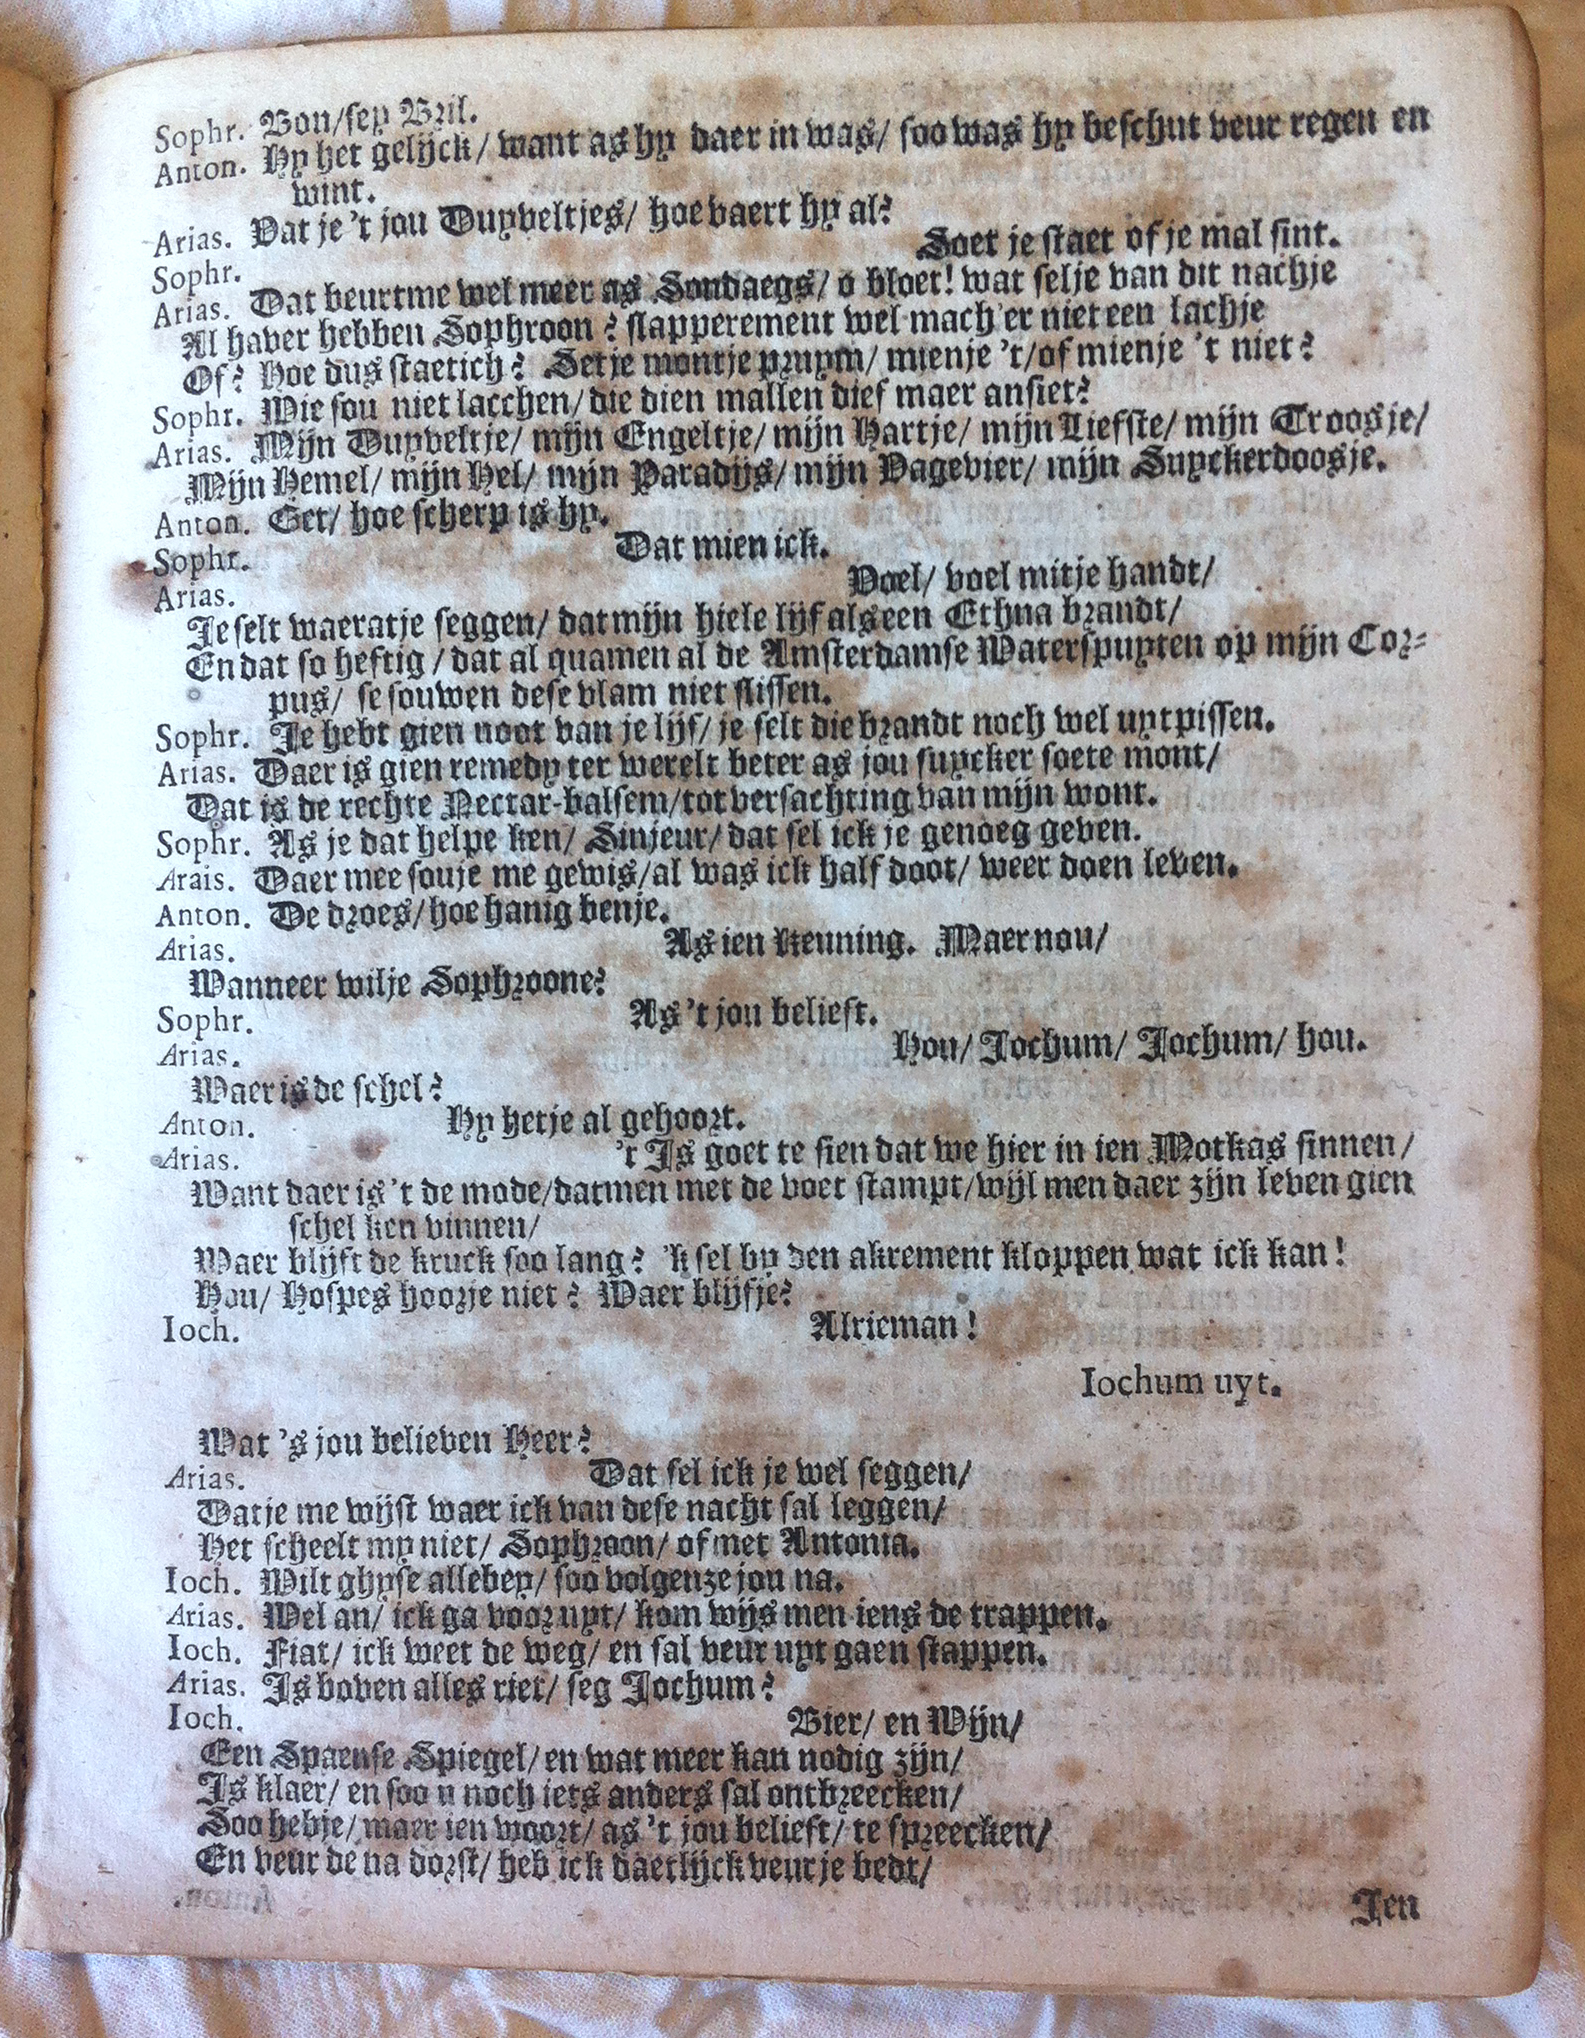 Sophr. Bou/sey Bril.
Anton. Hy het gelijck/ want as hy daer in was/ soo was hy beschut veur regen en
wint.
Arias. Dat je 't jou Duyveltjes/ hoe vaert hy al?
Sophr. Soet je staet of je mal sint.
Arias. Dat beurtme wel meer as Sondaegs/ o bloet! wat selje van dit nachje
Al haver hebben Sophroon? slapperement wel mach'er niet een lachje
Of? Hoe dus staetich? Setje montje pruym/ mienje 't/of mienje 't niet?
Sophr. Wie sou niet lacchen/ die dien mallen dief maer ansiet?
Arias. Mijn Duyveltje/ mijn Engeltje/ mijn Hartje/ mijn Liefste/ mijn Troosje/
Mijn Hemel/ mijn Hel/ mijn Paradijs/ mijn Vagevier/ mijn Suyckerdoosje.
Anton. Get/ hoe scherp is hy.
Sophr. Dat mien ick.
Arias. Voel/ voel mitje handt/
Je selt waeratje seggen/ dat mijn hiele lijf als een Ethna brandt/
En dat so heftig/ dat al quamen al de Amsterdamse Waterspuyten op mijn Cor-
pus/ se souwen dese vlam niet slissen.
Sophr. Je hebt gien noot van je lijf/ je selt die brandt noch wel uyt pissen.
Arias. Daer is gien remedy ter werelt beter as jou suycker soete mont/
Dat is de rechte Nectar-balsem/tot versachting van mijn wont.
Sophr. As je dat helpe ken/ Sinjeur/ dat sel ick je genoeg geven.
Arais. Daer mee souje me gewis/al was ick half doot/ weer doen leven.
Anton. De droes/hoe hanig benje.
Arias. As ien Keuning. Maer nou/
Wanneer wilje Sophroone?
Sophr. As 't jou belieft.
Arias. Hou/ Jochum/ Jochum/ hou.
Waer is de schel?
Anton. Hy hetje al gehoort.
Arias. 't Is goet te sien dat we hier in ien Motkas sinnen/
Want daer is 't de mode/datmen met de voet stampt/wijl men daer zijn leven gien
schel ken vinnen/
Waer blijft de kruck soo lang? 'k sel by den akrement kloppen wat ick kan!
Hou/ Hospes hoorje niet? Waer blijfje?
Ioch. Alrieman!
Iochum uyt.
Wat 's jou believen Heer?
Arias. Dat sel ick je wel seggen/
Datje me wijst waer ick van dese nacht sal leggen/
Het scheelt my niet/ Sophroon/ of met Antonia.
Ioch. Wilt ghyse allebey/ soo volgenze jou na.
Arias. Wel an/ ick ga voor uyt/ kom wijs men iens de trappen.
Ioch. Fiat/ ick weet de weg/ en sal veur uyt gaen stappen.
Arias. Is boven alles riet/ seg Jochum?
Ioch. Bier/ en Wijn/
Een Spaense Spiegel/ en wat meer kan nodig zijn/
Is klaer/ en soo u noch iets anders sal ontbreecken/
Soo hebje/ maer ien woort/ as 't jou belieft/ te spreecken/
En veur de na dorst/ heb ick daetlijck veur je bedt/
Ien